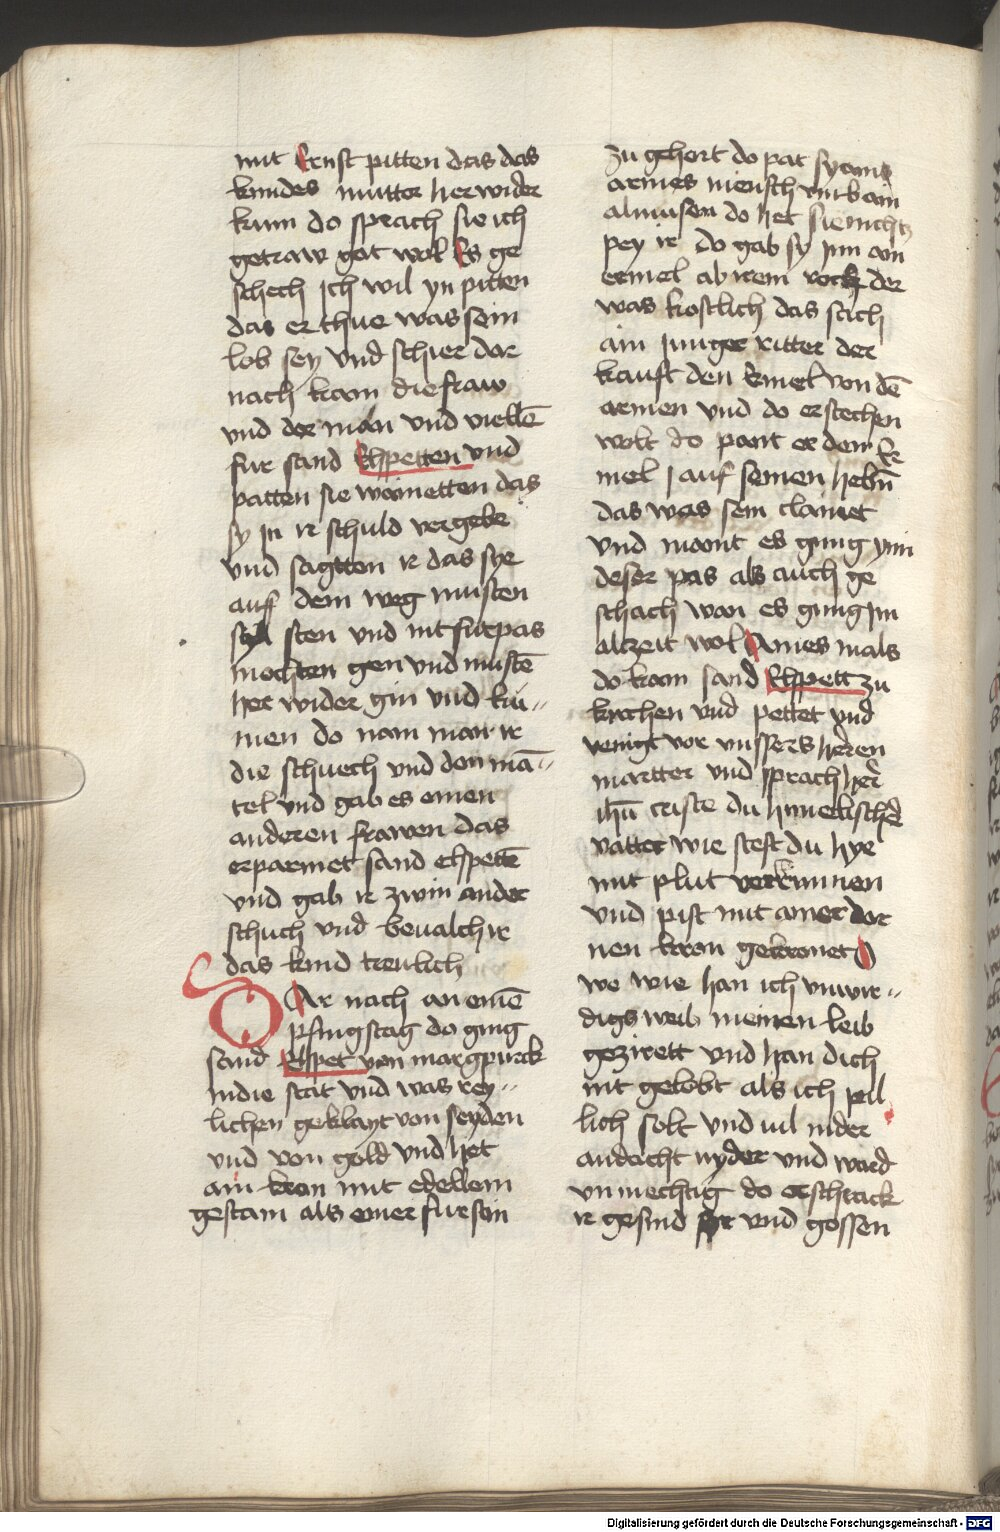 mit Ernst pitten das das
kindes mutter her wider
kum do sprach sie ich
getraw got wol Es ge
schech Ich wil yn pitten
das er thue was sein
lob sey vnd schier dar
nach kam die fraw
vnd der man vnd viellē
fur sand Elspetten vnd
patten sie wainetten das
sy in ir schuld vergebe
vnd sagtten ir das sye
auf dem weg musten
sten vnd nit furpas
mochten gen vnd mustē
her wider gin vnd ku-
men do nam man ir
die schuech vnd den mā-
tel vnd gab es einen
anderen frawen das
erparmet sand elspettē
vnd gab ir zwin ander
schuch vnd beualch ir
das kind treulich
DAr nach an einē
pfingstag do ging
sand Elspet von margpurck
in die stat vnd was rey-
lichen geklayt von seyden
vnd von gold vnd het
ain kron mit edellem
gestain als einer furstin
zu gehort do pat sy ains
armes mensch vmb ain
almusen do het sie nichtz
pey ir do gab sy Im ain
ermel ab irem rock der
was kostlich das sach
ain Iunger ritter der
kauft den Ermel von dē
armen vnd do er stechen
wolt do pant er dem Er
mel auf seinen helm
das was sein clainet
vnd maint es ging ym
deser pas als auch ge
schach wan es ging Im
alzeit wol Aines mals
do kam sand Elspett zu
kirchen vnd pettet vnd
venigt vor vnssers herren
martter vnd sprach her
ihū criste du himelischer
vatter wie stest du hye
mit plut verrunnen
vnd pist mit ainer dor
nen kron gekronet O
we wie han ich vnwir-
digs weib meinen leib
gezirett vnd han dich
nit gelobt als ich pil
lich solt vnd vil in der
andacht nyder vnd ward
vnmechtig do erschrack
ir gesind ser vnd gossen
Digitalisierung gefördert durch die Deutsche Forschungsgemeinschaft - DFG